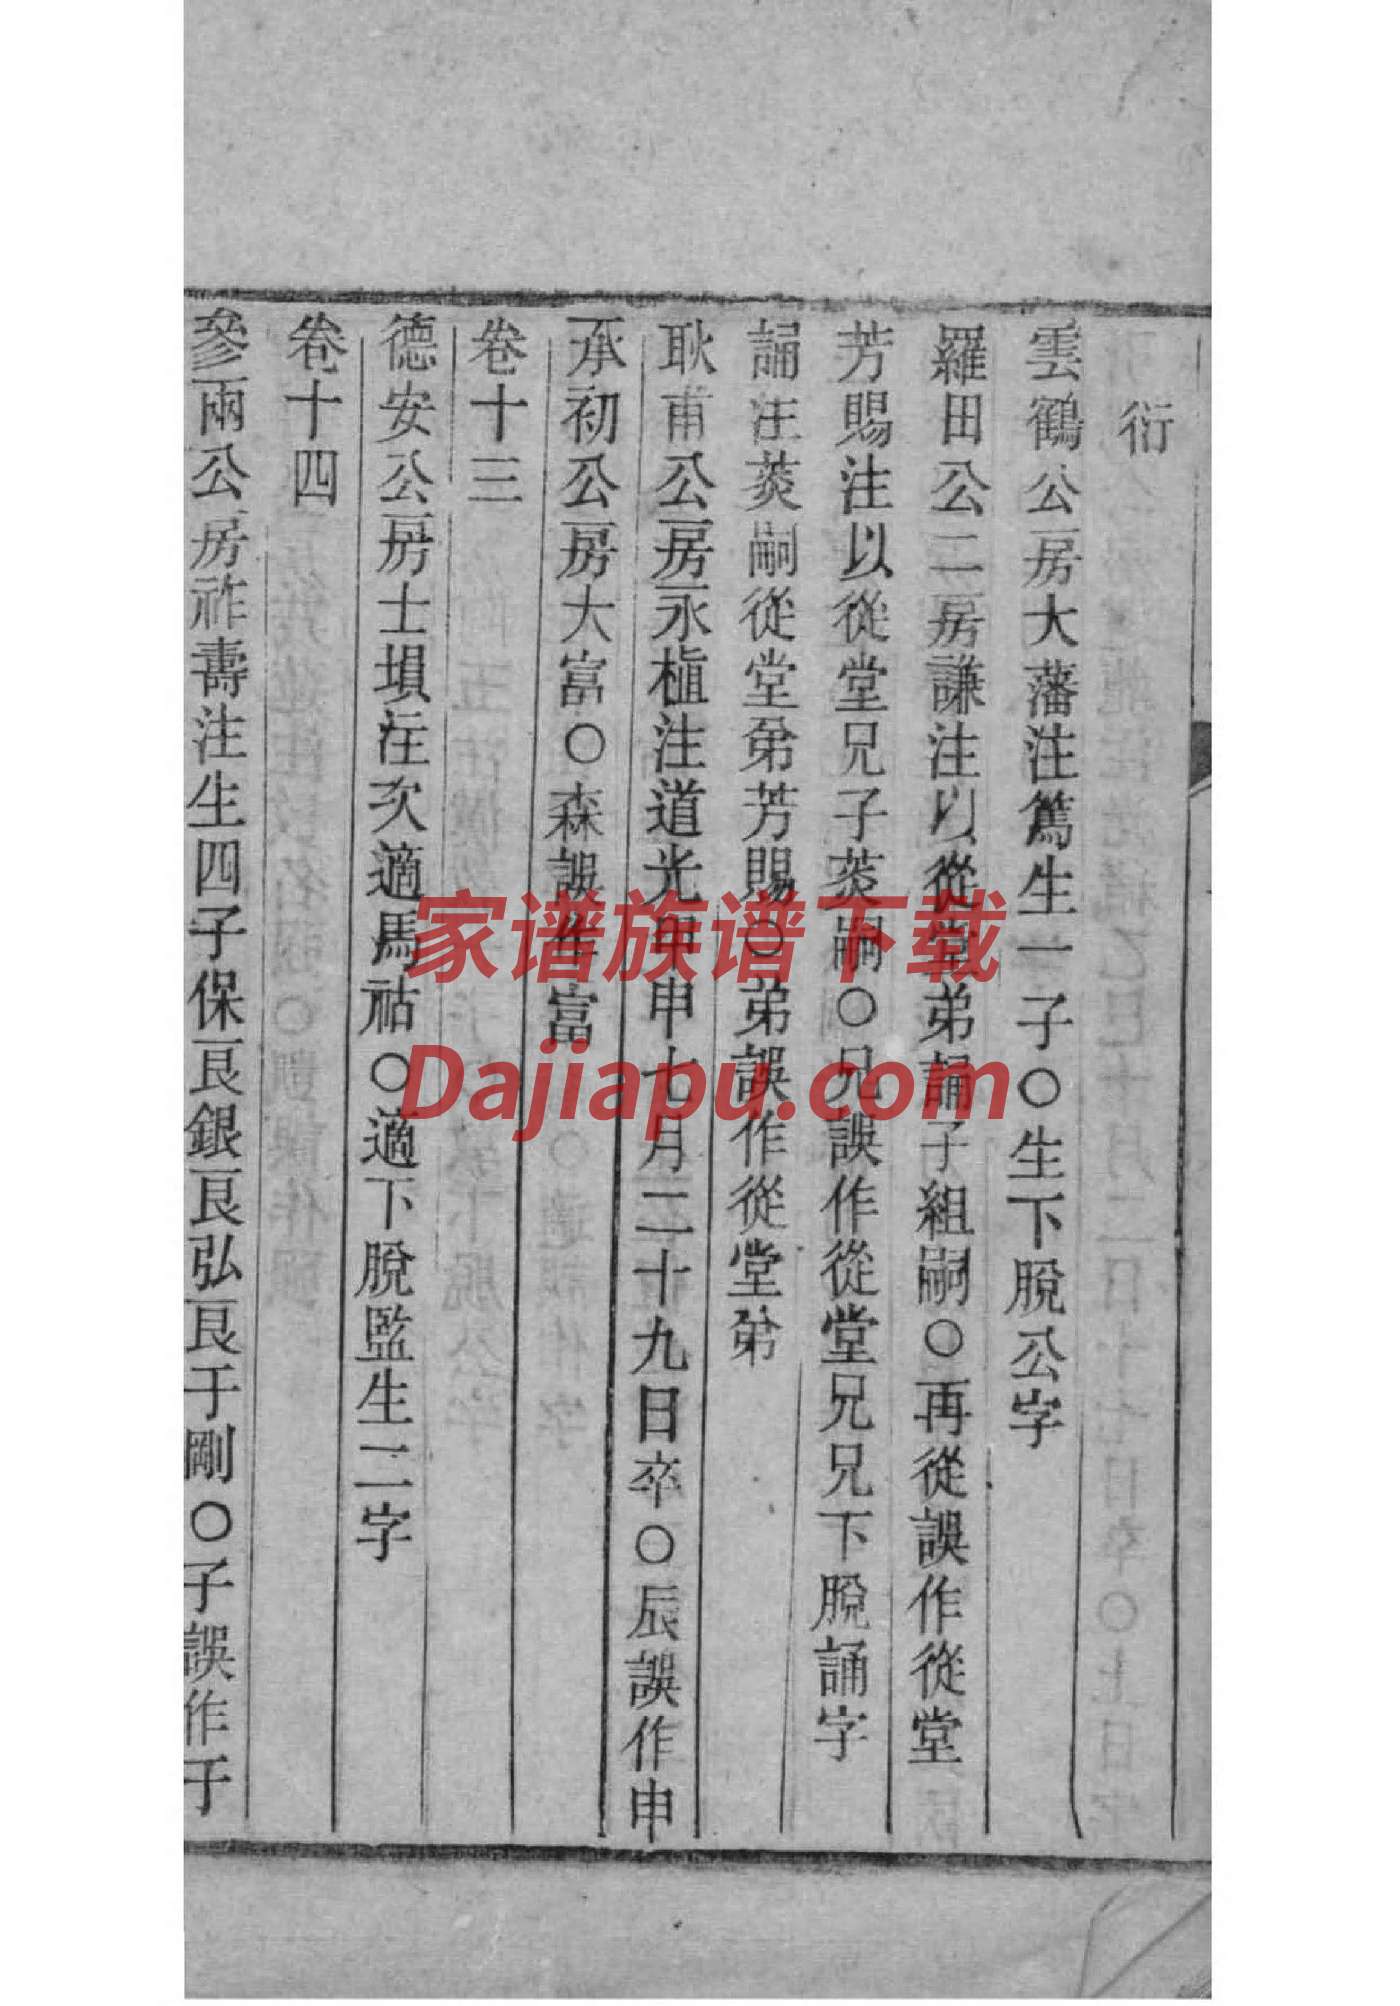 衍
雲鶴公房大藩注篤生一子○生下脫公字
羅田公二房謙注以從堂弟誦子組嗣○再從誤作從堂
芳賜注以從堂兄子荄嗣○兄誤作從堂兄兄下脫誦字
誦注荄嗣從堂弟芳賜○弟誤作從堂弟
耿甫公房永植注道光甲申七月二十九日卒○辰誤作申
承初公房大富○森誤作富
卷十三
德安公房士塤注次適馬祜○適下脫監生二字
卷十四
參兩公房祚壽注生四子保艮銀艮弘艮于剛○子誤作于
家谱族谱下载
Dajiapu.com